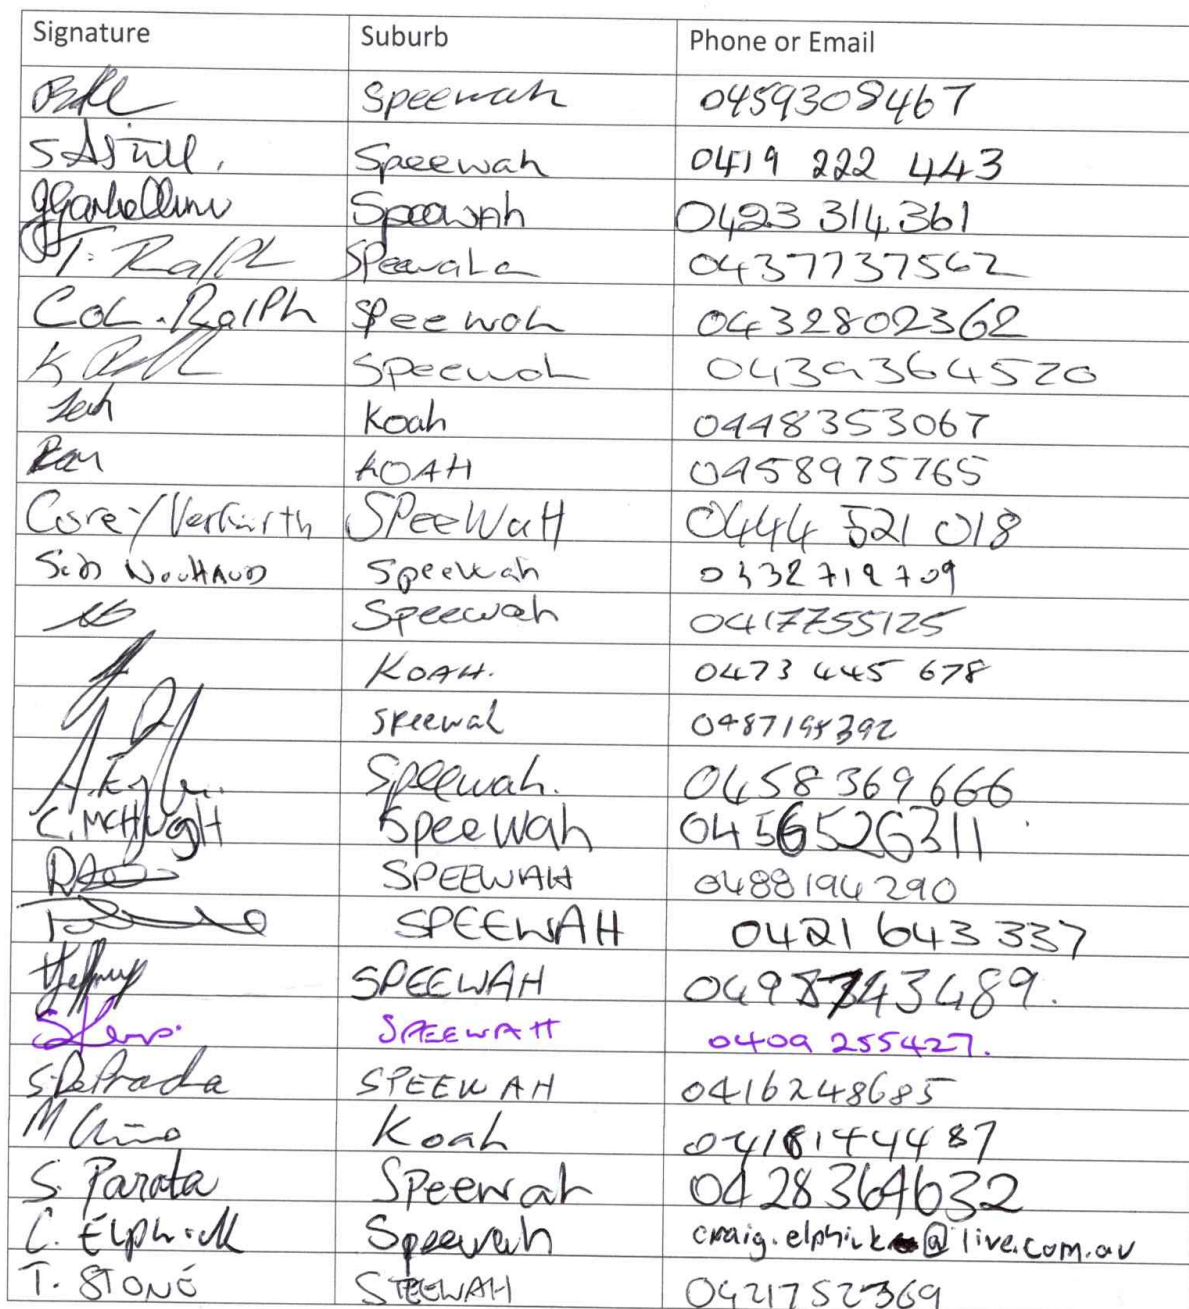 Signature Suburb Phone or Email
Speewah 0459308467
S Astill. Speewah 0419 222 443
Speewah 0423 314 361
T. Ralph Speewah 0437737562
Col. Ralph Speewah 0432802362
K Speewah 0439364520
Koah 0448353067
KOAH 0458975765
Corey Verhirth SPeeWaH 0444 521 018
Speewah 0432 712 709
Speewah 0417755125
KOAH. 0473 445 678
Speewah
Speewah. 0458 369 666
C. McHugh Speewah 0456526311
SPEEWAH 0488194290
SPEEWAH 0421 643 337
SPEEWAH
SPEEWAH 0409 255427.
S. DePrada SPEEWAH 0416248685
M Koah 0418144487
S. Parata Speewah 0428364632
C. Elphick Speewah craig.elphick@live.com.au
T. STONE STEEWAH 0421752369